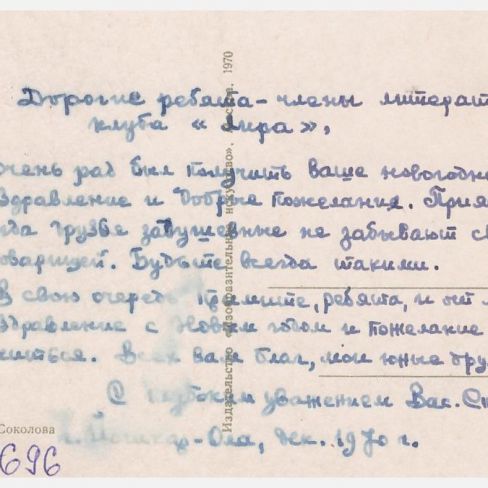 Дорогие ребята - члены литерат
клуба « Лира »,
очень рад был получить ваше новогодн
здравление и добрые пожелания. Прия
гда друзья за не забывают с
оварищей. Будьте всегда такими.
В свою очередь примите, ребята, и от м
здравление с Новым годом и пожелание
Всех вам благ, мои юные дру
С глубоким уважением Вас. С
г. Йошкар-Ола, дек. 1970 г.
Издательство «Изобразительное искусство». 1970
Соколова
696